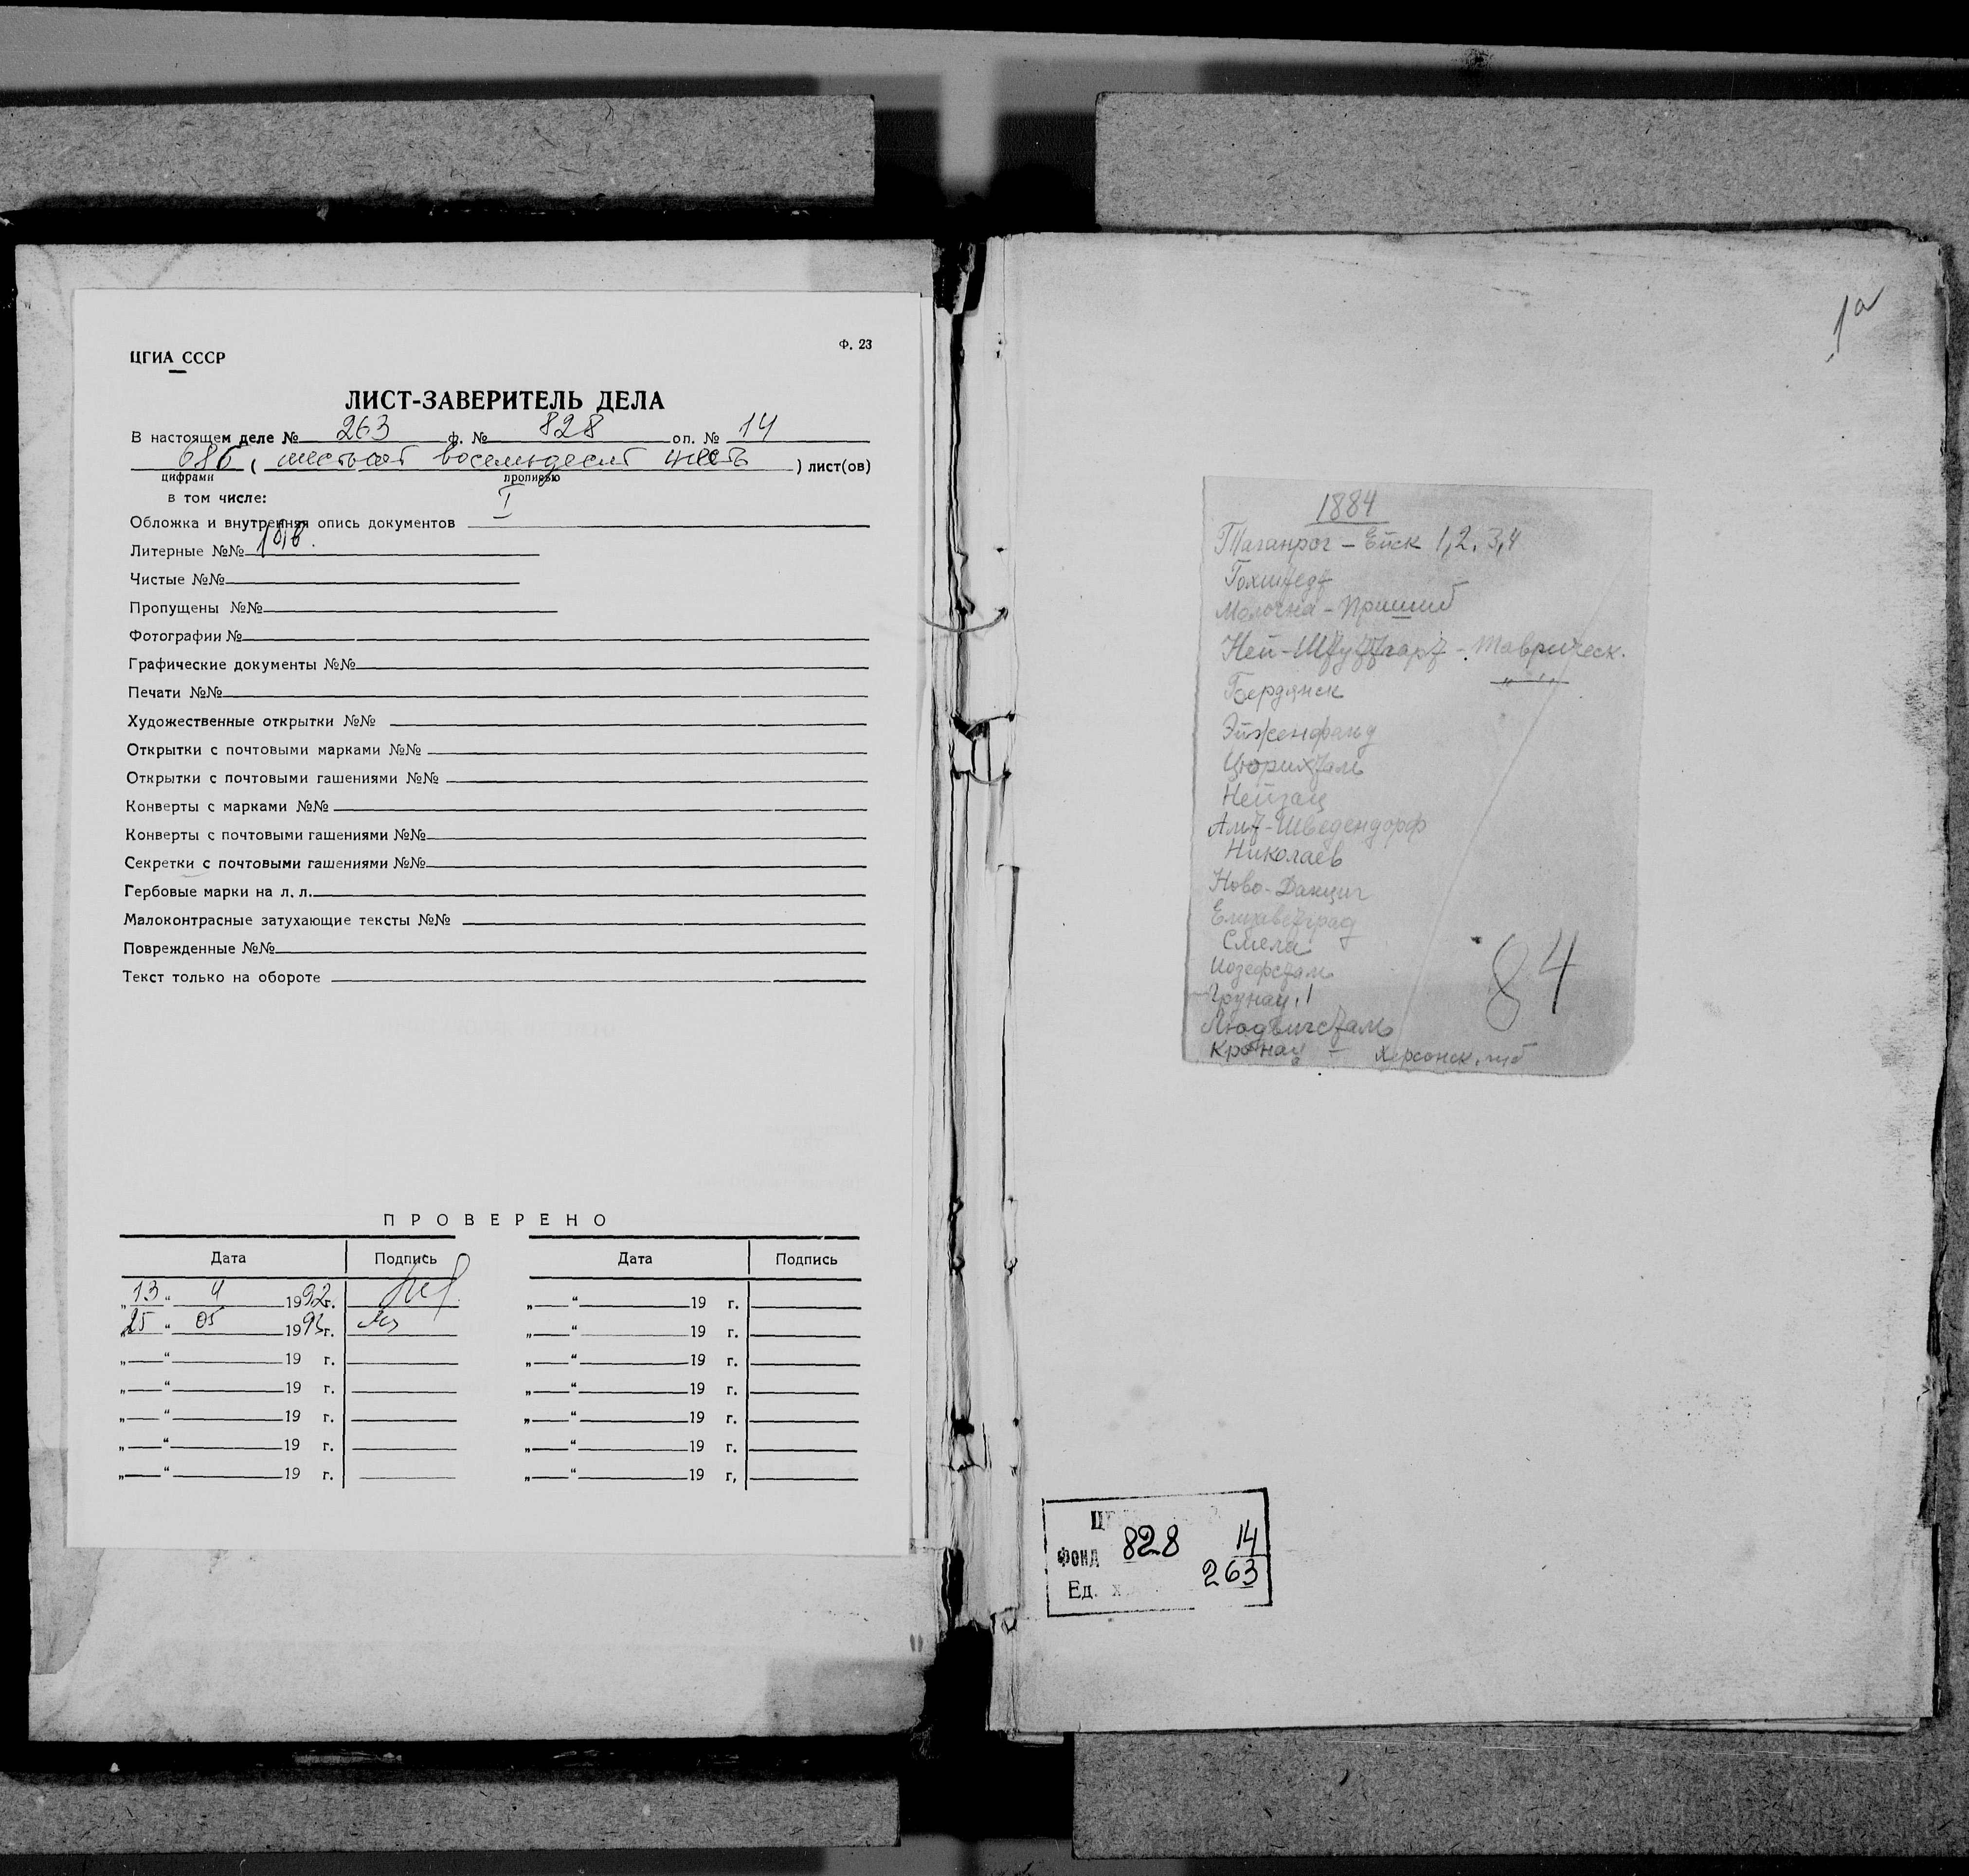 ЦГИА СССР
Ф. 23
ЛИСТ-ЗАВЕРИТЕЛЬ ДЕЛА
В настоящем деле № 263 ф. № 828 оп. № 14
686 ( шестьсот восемьдесят шесть ) лист(ов)
цифрами прописью
в том числе:
Обложка и внутренняя опись документов I
Литерные №№ 1а,б.
Чистые №№
Пропущены №№
Фотографии №
Графические документы №№
Печати №№
Художественные открытки №№
Открытки с почтовыми марками №№
Открытки с почтовыми гашениями №№
Конверты с марками №№
Конверты с почтовыми гашениями №№
Секретки с почтовыми гашениями №№
Гербовые марки на л. л.
Малоконтрасные затухающие тексты №№
Поврежденные №№
Текст только на обороте
ПРОВЕРЕНО
Дата Подпись Дата Подпись
„13“ 4 1992г. „ “ 19 г.
„25“ 05 1993г. „ “ 19 г.
„ “ 19 г. „ “ 19 г.
„ “ 19 г. „ “ 19 г.
„ “ 19 г. „ “ 19 г.
„ “ 19 г. „ “ 19 г.
„ “ 19 г. „ “ 19 г,
1а
1884
Таганрог - Ейск 1,2,3,4
Гохштедт
Молочна - Пришиб
Ней-Штуттгарт - Таврическ.
Бердянск — " —
Эйгенфельд
Цюрихталь
Нейзац
Альт-Шведендорф
Николаев
Ново-Данциг
Елизаветград
Смела
Иозефсталь
Грунау, 1
Людвигсталь
Кронау - Херсонск. губ
84
Фонд 828 14
Ед. х 263